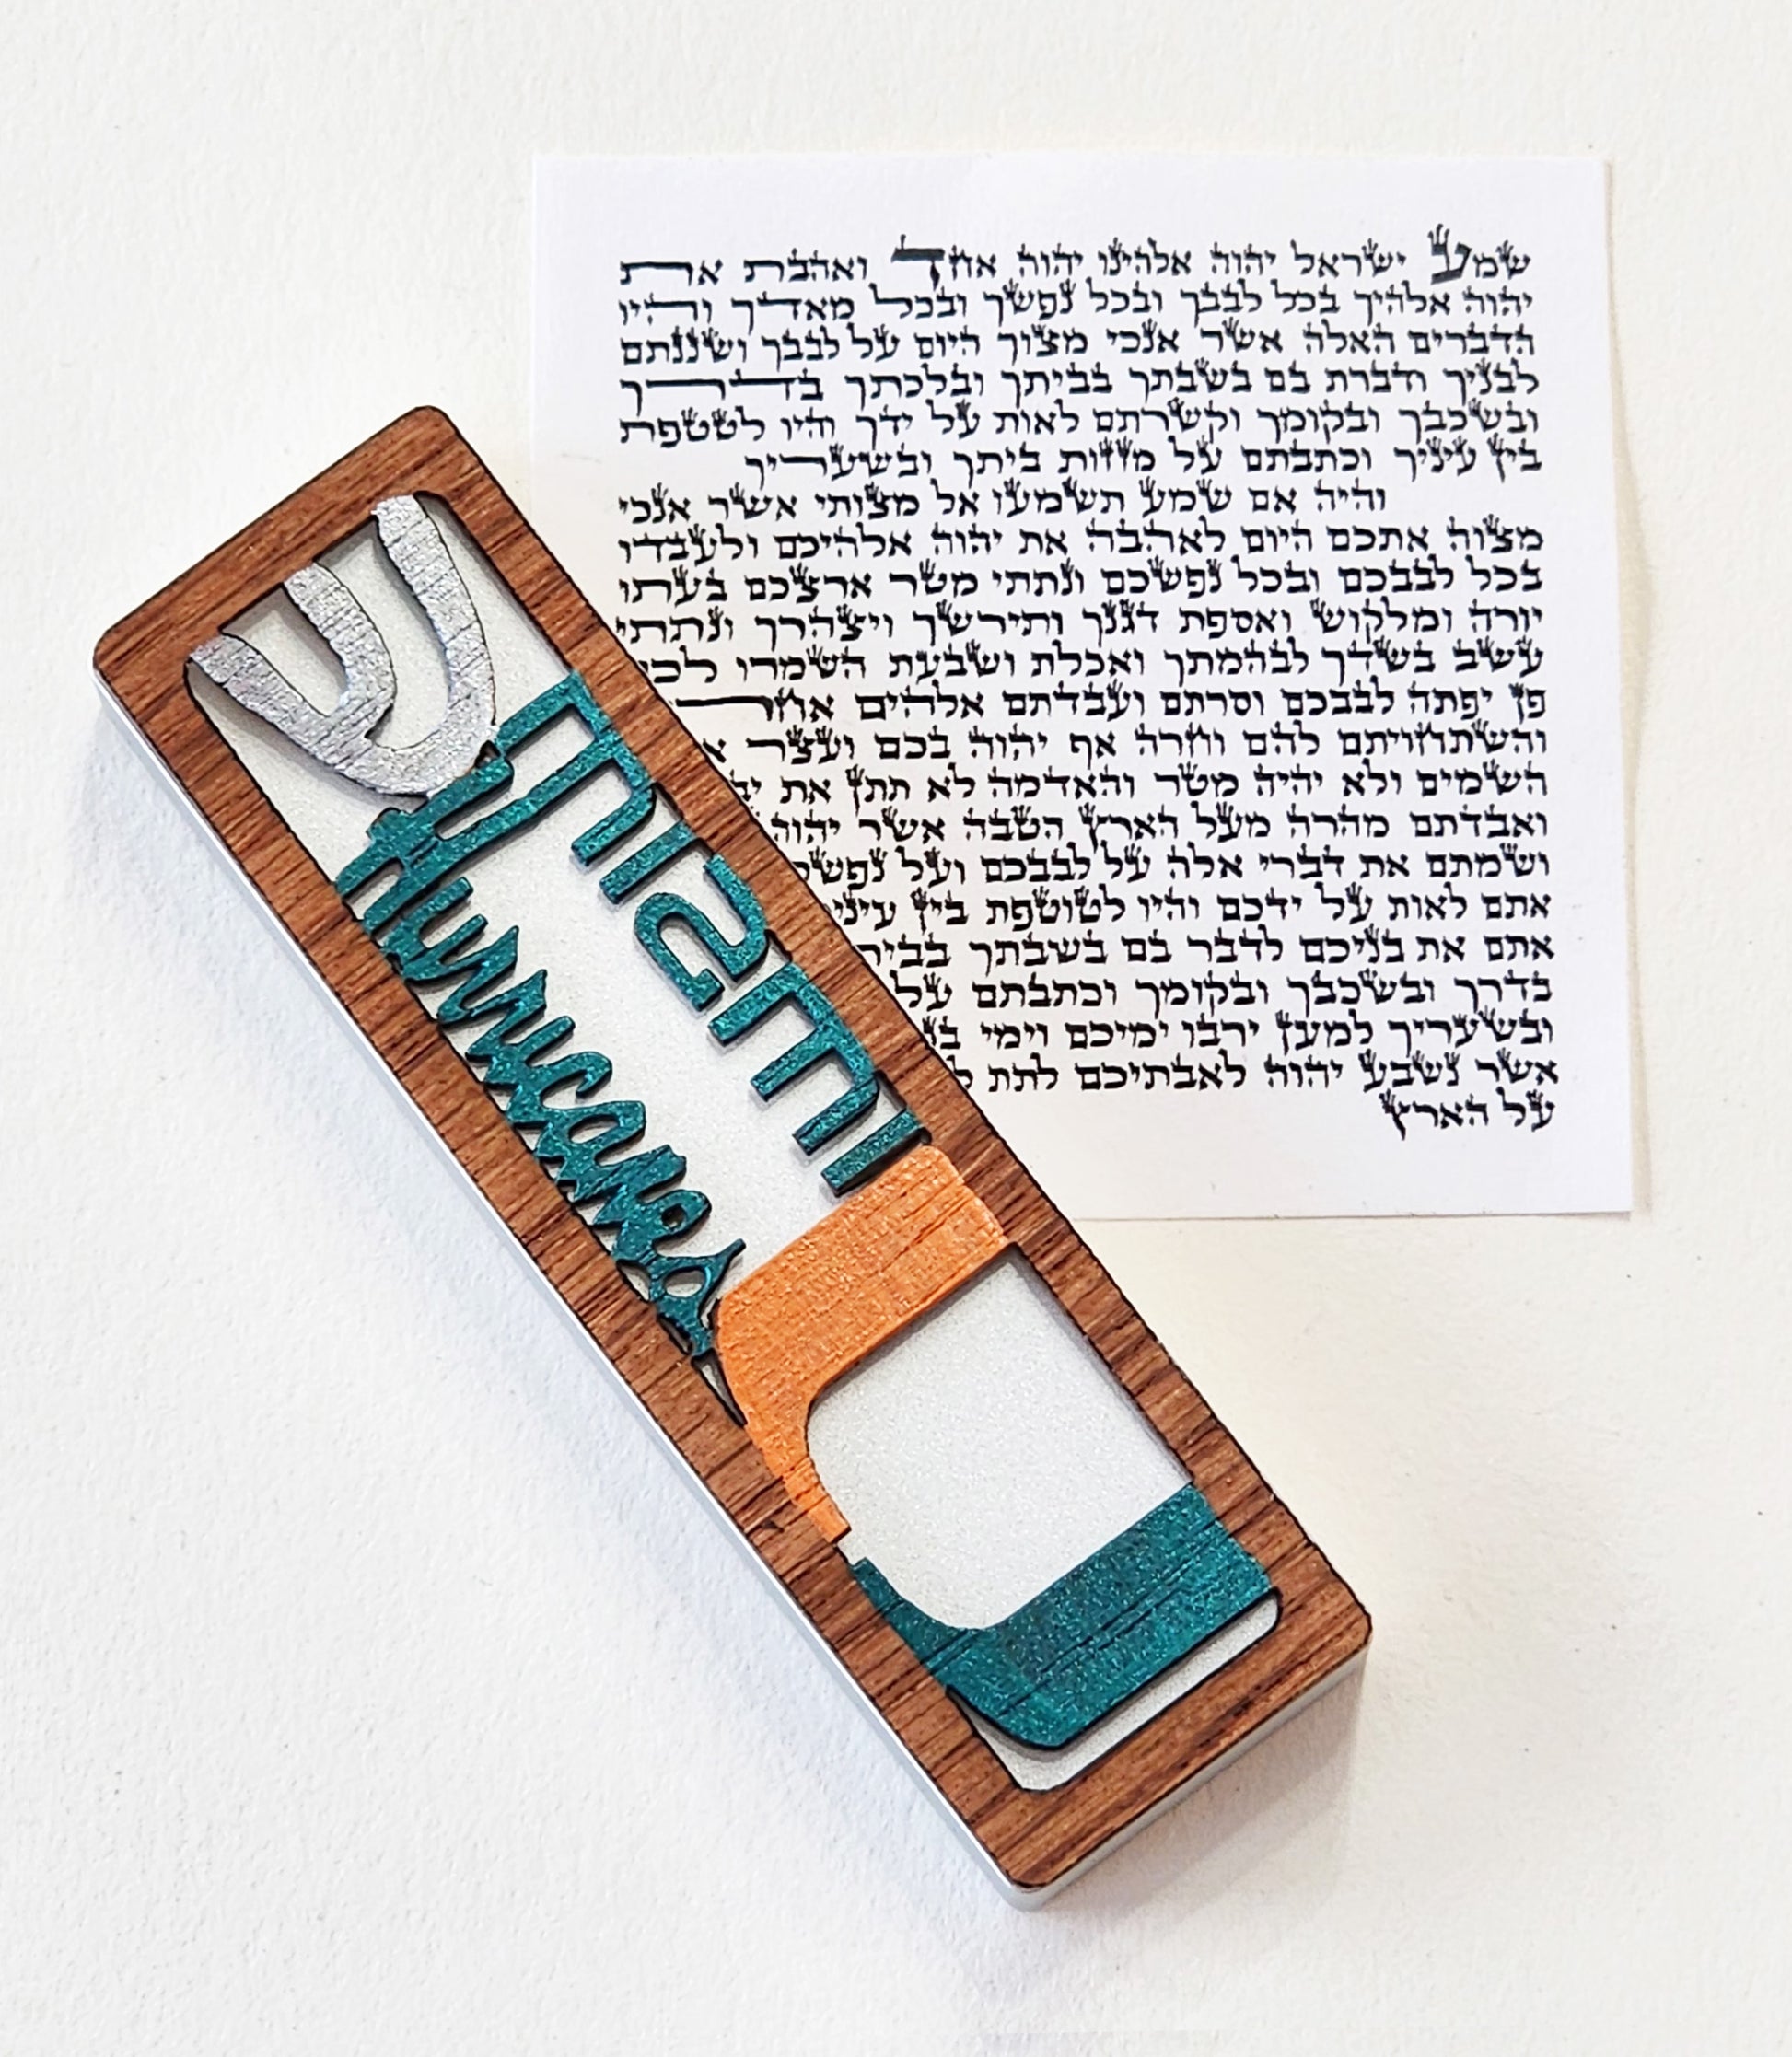 ש
miami
Hurricanes
שמע ישראל יהוה אלהינו יהוה אחד ואהבת את
יהוה אלהיך בכל לבבך ובכל נפשך ובכל מאדך והיו
הדברים האלה אשר אנכי מצוך היום על לבבך ושננתם
לבניך ודברת בם בשבתך בביתך ובלכתך בדרך
ובשכבך ובקומך וקשרתם לאות על ידך והיו לטטפת
בין עיניך וכתבתם על מזזות ביתך ובשעריך
והיה אם שמע תשמעו אל מצותי אשר אנכי
מצוה אתכם היום לאהבה את יהוה אלהיכם ולעבדו
בכל לבבכם ובכל נפשכם ונתתי מטר ארצכם בעתו
יורה ומלקוש ואספת דגנך ותירשך ויצהרך ונתתי
עשב בשדך לבהמתך ואכלת ושבעת השמרו
פן יפתה לבבכם וסרתם ועבדתם אלהים
והשתחויתם להם וחרה אף יהוה בכם ועצר
השמים ולא יהיה מטר והאדמה לא תתן את
ואבדתם מהרה מעל הארץ הטבה אשר יהוה
ושמתם את דברי אלה על לבבכם ועל
אתם לאות על ידכם והיו לטוטפת בין
אתם את בניכם לדבר בם בשבתך
בדרך ובשכבך ובקומך וכתבתם על
ובשעריך למען ירבו ימיכם וימי
אשר נשבע יהוה לאבתיכם לתת
על הארץ